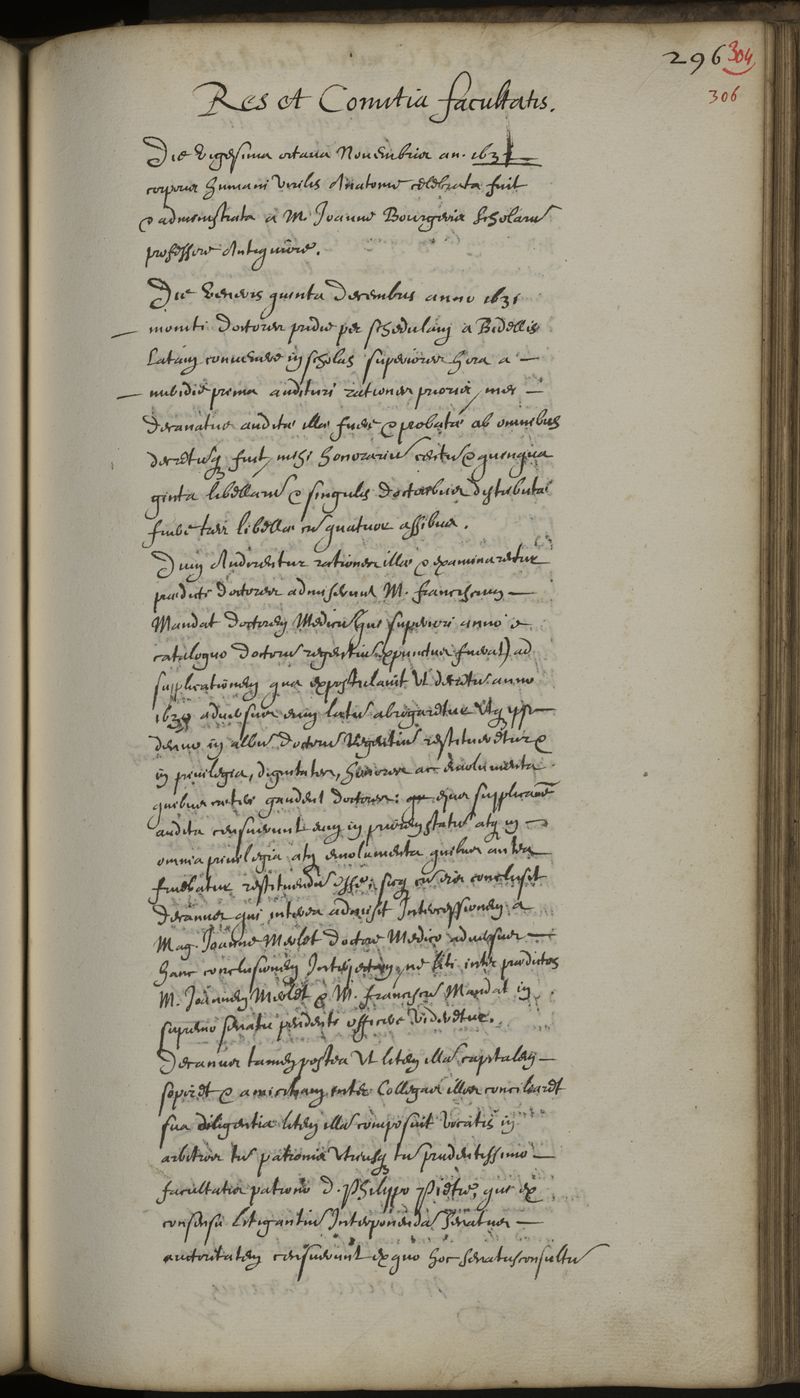 296 304
306
Res et Comitia facultatis.
Die Vigesima octava Novembris an. 1631
corporis humani Virilis Anatome celebrata fuit
& administrata a M. Joanne Bourgeois scholarū
professore Antiquiore.
Die Veneris quinta Decembris anno 1631
moniti Doctores pridie per schedulam a Bidellis
Latam convenere in scholas superiores hora a
meridie prima audituri rationes prioris mei
Decanatus auditæ illæ fuere & probatæ ab omnibus
decretūq fuit mihi honorariū centū & quinqua
ginta libellarū & singulis doctoribus distributæ
fuere tres libellæ cū quatuor assibus.
Dum Audirentur rationes illæ & examinaretur
prædicti doctores admiserunt M. Franciscum
Mandat doctorem Medicū (qui superiori anno e
catalogo doctorū regentiū expunctus fuerat) ad
supplicationem qua expostulavit Ut decretū anno
1630 adversus eum latū abrogaretur Utq ipse
denuo in albū doctorū Regentiū restitueretur &
in privilegia, dignitates, honores ac emolumenta
quibus cæteri gaudent doctores: ejus supplicatōe
audita censuerunt eum in priorem statū atq in
omnia privilegia atq emolumenta quibus antea
fruebatur restituendū esse; sicq cū eis conclusit
Decanus qui interea admisit Intercessionem a
Mag. Joanne Merlet doctore Medico adversus
hanc conclusionem Interjectam, ne liti inter prædictos
M. Joannem Merlet & M. Franciscū Mandat in
supremo senatu pendenti officere Videretur.
Decanus tamen postea Ut litem illā capitalem
sopiret & amicitiam inter Collegas illos conciliaret
sua diligentia litem illā composuit Vocatis in
arbitros tū patronis Utriusq tū prudentissimo
facultatis patrono D. Philippo Pietre, qui ex
consensu Litigantiū Interponendā Senatus
auctoritatem censuerunt ex quo hoc senatusconsultū